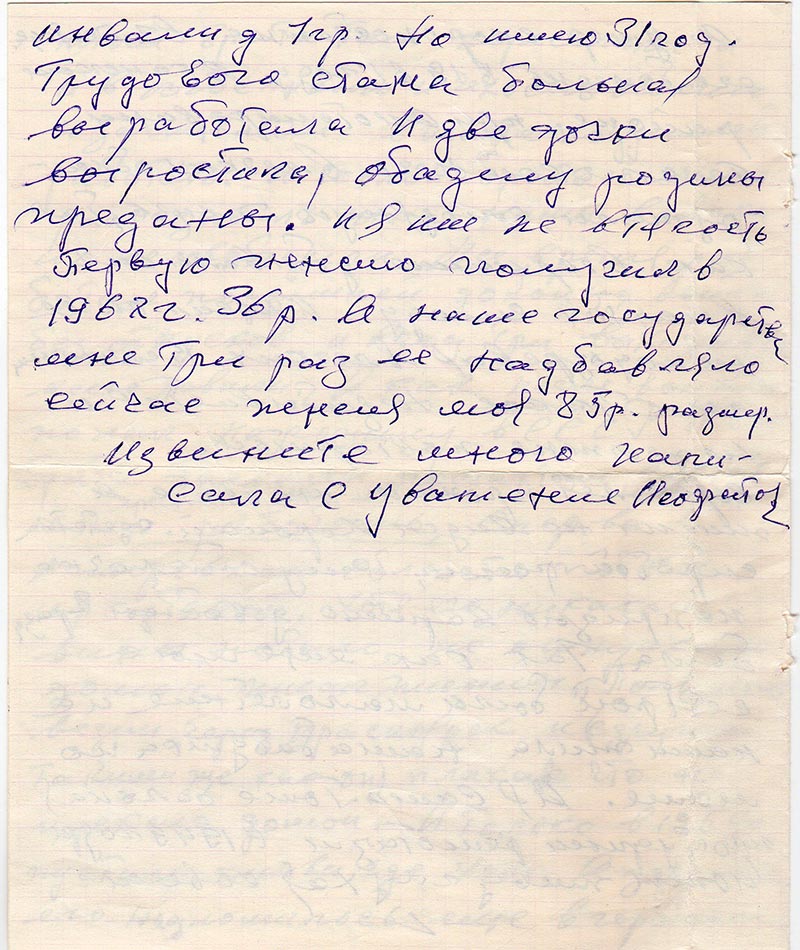 инвалид 1 гр. Но имею 31 год.
Трудового стажа больная
выработала И две дочки
выростила, обадему родины
преданы. И я им не втягость
Первую пенсию получил в
1962 г. 36 р. А наше государство
мне Три раз ее надбавляло
сейчас пенсия моя 85 р. размер.
Извините много напи-
сала С уважение